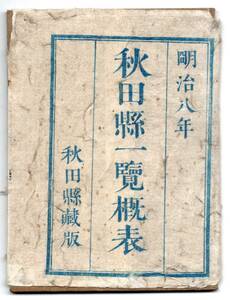 明治八年
秋田縣一覽概表
秋田縣藏版